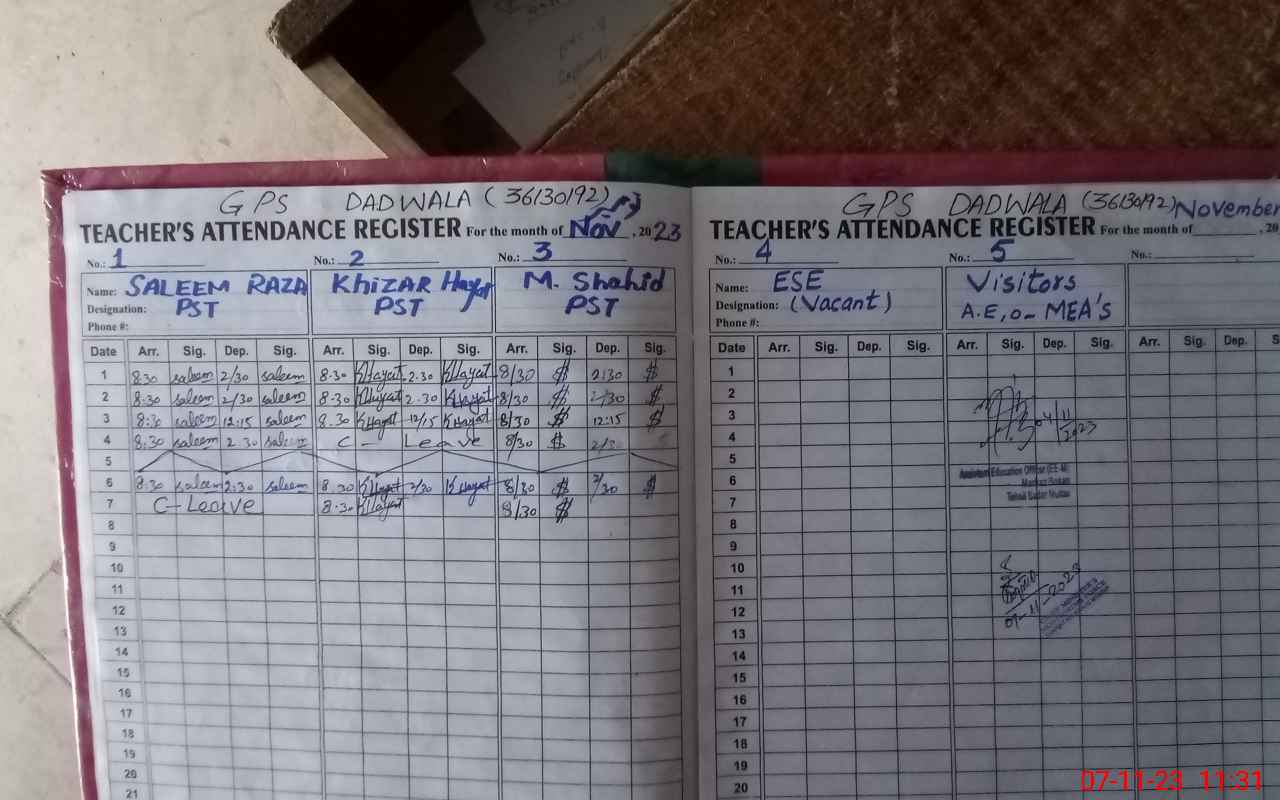 GPS DADWALA (36130192)
TEACHER'S ATTENDANCE REGISTER For the month of Nov, 2023
No.: 1 No.: 2 No.: 3
Name: SALEEM RAZA Khizar Hayat M. Shahid
Designation: PST PST PST
Phone #:
Date Arr. Sig. Dep. Sig. Arr. Sig. Dep. Sig. Arr. Sig. Dep. Sig.
1 8:30 saleem 2/30 saleem 8.30 KHayat 2.30 KHayat 8/30 $ 2:30 $
2 8:30 saleem 2/30 saleem 8.30 KHayat 2.30 KHayat 8/30 $ 2/30 $
3 8:30 saleem 12:15 saleem 8.30 KHayat 12/15 KHayat 8/30 $ 12:15 $
4 8:30 saleem 2 30 saleem C- Leave 8/30 $ 2/30
5
6 8:30 saleem 2:30 saleem 8.30 KHayat 2/30 KHayat 8/30 $ 2/30 $
7 C-Leave 8.30 KHayat 8/30 $
8
9
10
11
12
13
14
15
16
17
18
19
20
21
GPS DADWALA (36130192) November
TEACHER'S ATTENDANCE REGISTER For the month of , 20
No.: 4 No.: 5 No.:
Name: ESE Visitors
Designation: (Vacant) A.E,o- MEA'S
Phone #:
Date Arr. Sig. Dep. Sig. Arr. Sig. Dep. Sig. Arr. Sig. Dep. S
1
2
3
4 04/11/2023
5
6 Assistant Education Officer (EE-M)
7
8
9
10
11
12 07-11-2023
13
14
15
16
17
18
19
20
07-11-23 11:31